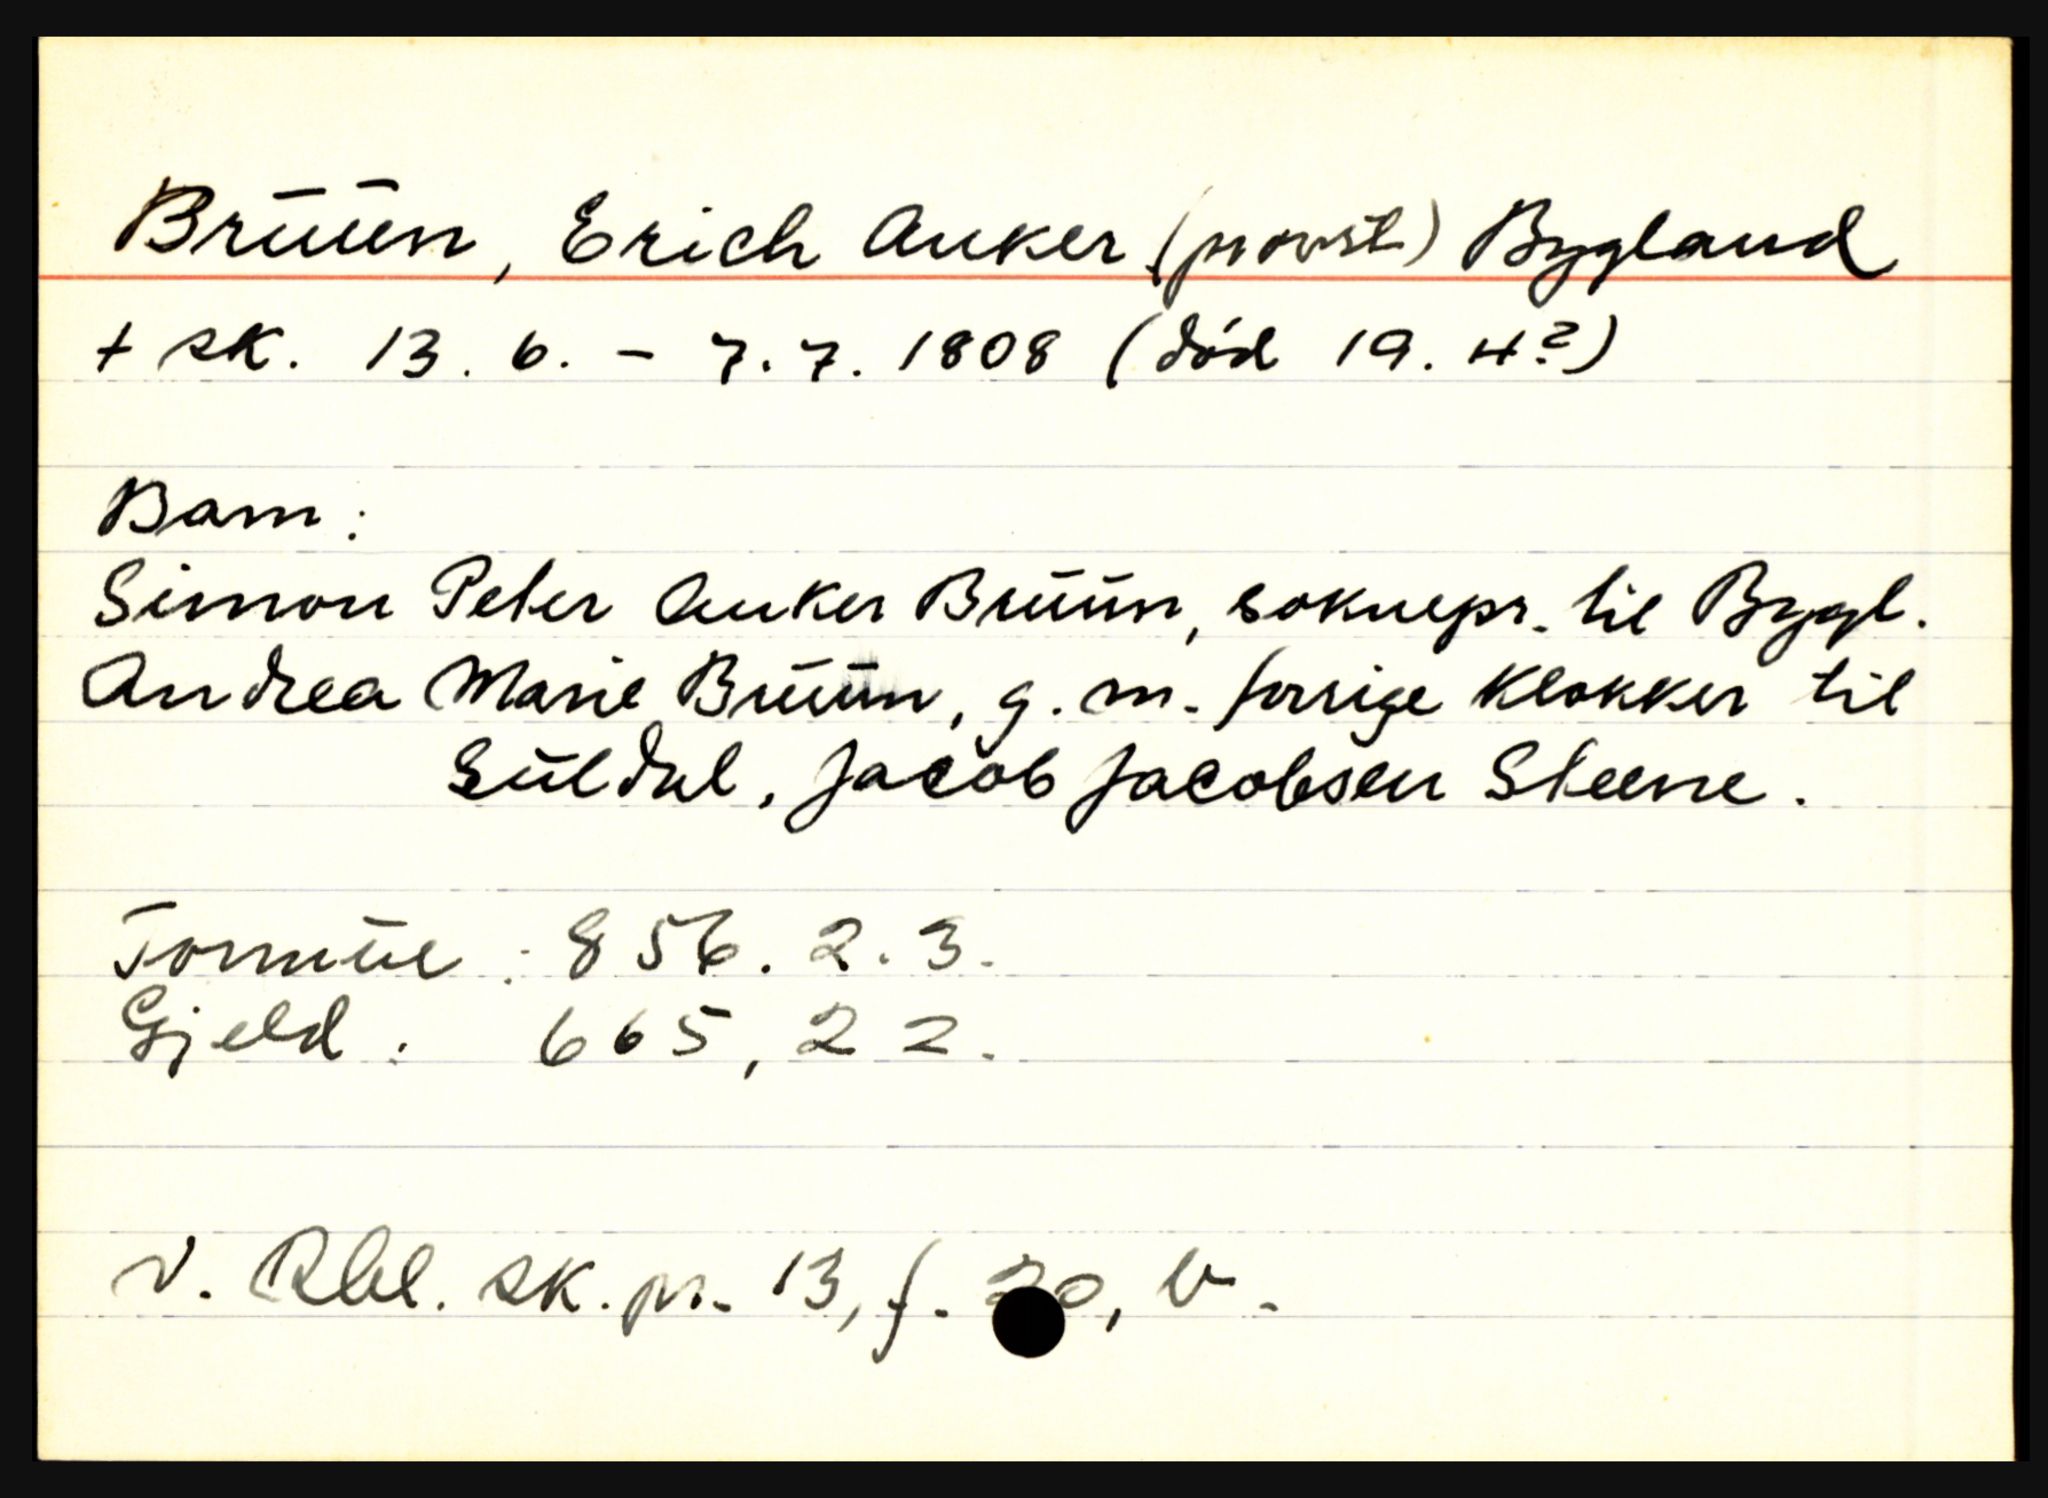 Brūūn, Erich Anker (provst) Bygland
+ sk. 13. 6. - 7. 7. 1808 (død 19. 4?)
Barn:
Simon Peter Anker Brūūn, soknepr. til Bygl.
Andrea Marie Brūūn, g. m. forrige klokker til
Sūldal, Jacob Jacobsen Steene.
Formūe: 856. 2. 3.
Gjeld: 665, 2 2.
V. Rbl. sk. pr. 13, f. 20, b.